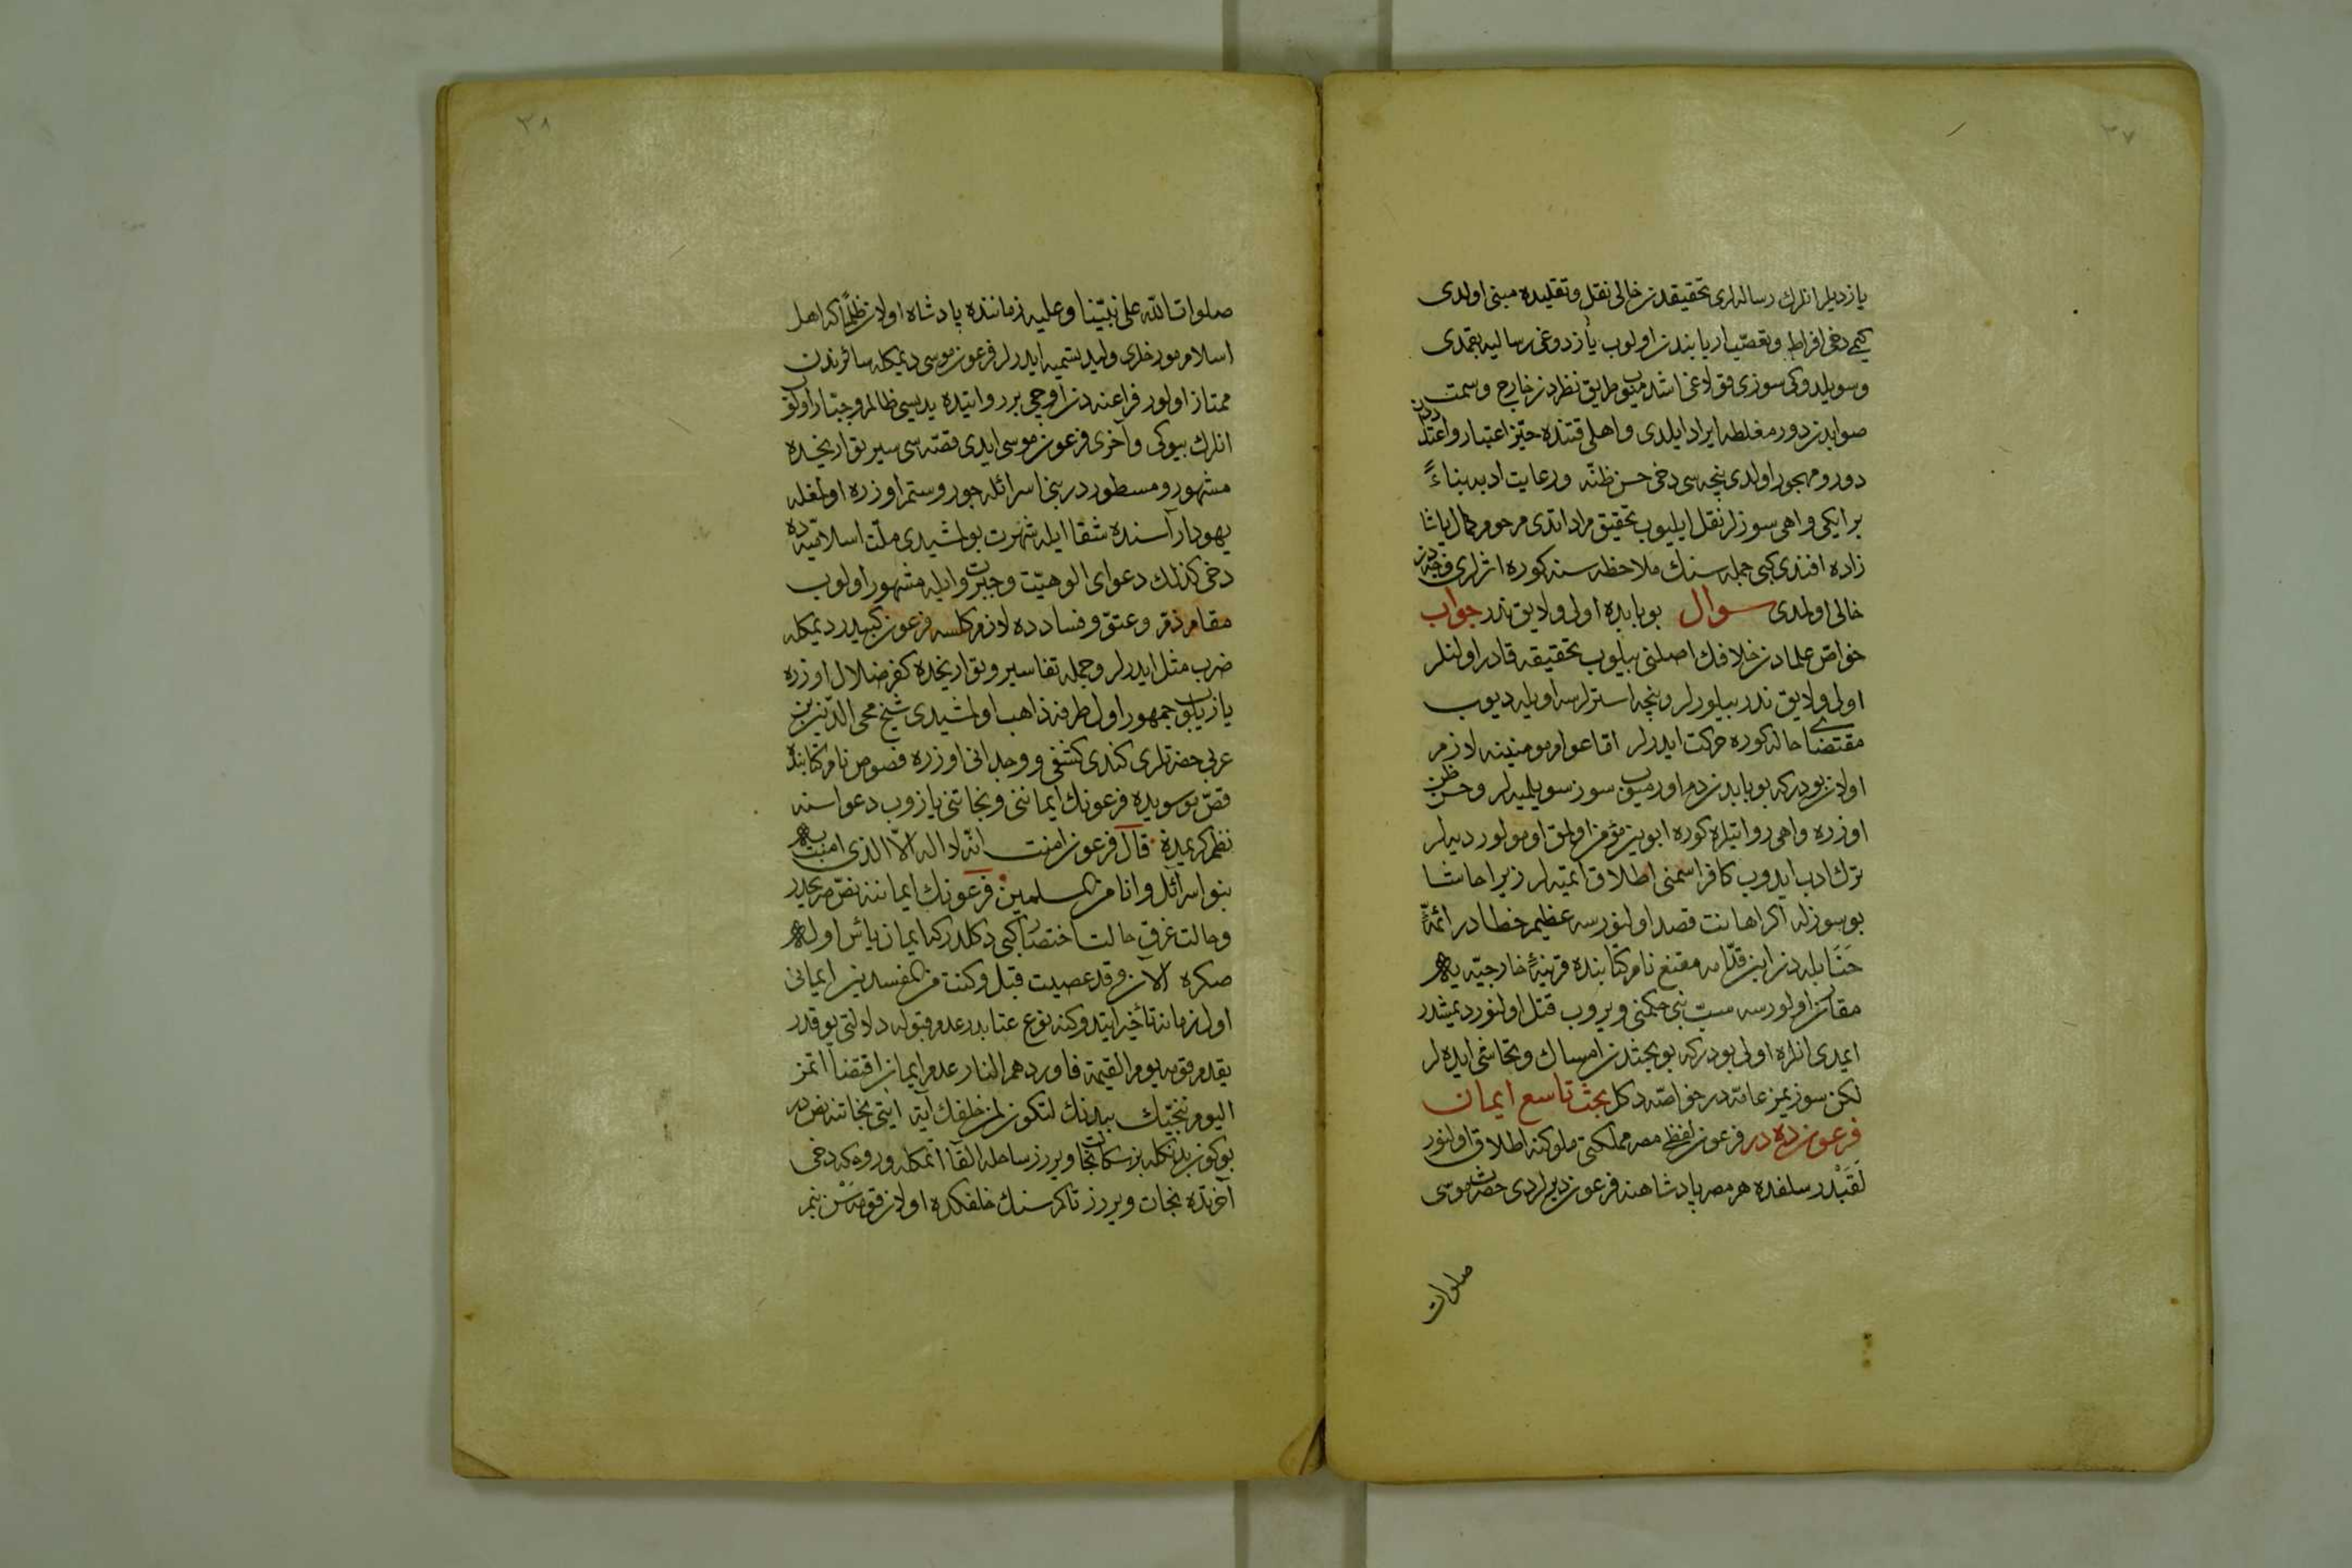 ٣٧
يازديلر انلرك رسالەلری تحقيقدن خالی نقل و تقليده مبنی اولدی
كمی دخی افراط و تعصب اربابندن اولوب يازدوغی رسالیه يتمدی
و سويلدوكی سوزی طريق نظردن خارج و سمت
صوابدن دور مغلطه ايراد ايلدی و اهلی قتنده حيّز اعتبار و اعتددن
دور و مهجور اولدی نيچه سی دخی حسن ظنّه و رعايت ادبه بناءً
بر ايكی واهی سوزلر نقل ايليوب تحقيق مراد اتدی مرحوم كمال پاشا
زاده افندی كبی جمله سنك ملاحظه سنه كوره اثرلری قدحدن
خالی اولمدی سوال بو بابده اولی و لايق ندر جواب
خواص علمادن خلافك اصلنی بيلوب تحقيقه قادر اولنلر
اولی و لايق ندر بيلورلر و نيچه استرلرسه اويله ديوب
مقتضای حاله كوره حركت ايدرلر اما عوام مومنينه لازم
اولان بودر كه بو بابدن دم اورميوب سوز سويلميه لر و حسن ظن
اوزره واهی روايتلره كوره ابوين مؤمن اولمق اومولور ديه لر
ترك ادب ايدوب كافر اسمنی اطلاق ايتميه لر زيرا حاشا
بو سوزله اكر اهانت قصد اولنورسه عظيم خطادر ائمّهٔ
حنابله دن ابن قدّامه مقنع نام كتابنده قرينهٔ خارجيّه يه
مقارن اولورسه سبّ نبی حكمنی ويروب قتل اولنور ديمشدر
ايمدی انلره اولی بودر كه بو بحثدن امساك و تحاشی ايده لر
لكن سوزيمز عامّه در خواصّه دكل بحث تاسع ايمان
فرعون ده در فرعون لفظی مصر مملكتی ملوكنه اطلاق اولنور
لَقَبْدر سلفده هر مصر پادشاهنه فرعون ديرلردی حضرت موسی
صلوات
٣٨
صلوات الله علی نبيّنا و عليه زماننده پادشاه اولان ظلّامكه اهل
اسلام مورخلری وليد تسميه ايدرلر فرعون موسی ديمكله سائرندن
ممتاز اولور فراعنه دن اوچی بر روايتده يديسی ظالم و جبّار اولوب
انلرك بيوكی و آخری فرعون موسی ايدی قصّه سی سير تواريخده
مشهور و مسطوردر بنی اسرائله جور و ستم اوزره اولمغله
يهودار آسنده شقا ايله شهرت بولمشيدی ملّت اسلاميّه ده
دخی كذلك دعوای الوهيّت و جبروت ايله مشهور اولوب
مقام ذم و عتوّ و فسادده لازم كلسه فرعون كبيدر ديمكله
ضرب مثل ايدرلر و جمله تفاسير و تواريخده كفر ضلال اوزره
يازيلوب جمهور اول طرفه ذاهب اولمشيدی شيخ محی الدّين بن
عربی حضرتلری كندی كشفی و وجدانی اوزره فصوص نام كتابنده
فصّ موسويده فرعونك ايماننی و نجاتنی يازوب دعواسنه
نظم كريمده قال فرعون امنت انّه لا اله الّا الذی امنت به
بنو اسرائل و انا من المسلمين فرعونك ايماننه نصّ صريحدر
و حالت غرق حالت احتضار كبی دكلدر كه ايمان يأس اوله
صكره الآن و قد عصيت قبل و كنت من المفسدين ايمانی
اول زمانه تأخير ايتدوكنه نوع عتابدر عدم قبوله دلالتی يوقدر
يقدم قومه يوم القيمة فاوردهم النار عدم ايمان اقتضا اتمز
اليوم ننجّيك ببدنك لتكون لمن خلفك آية ايتی نجاتنه نصدر
بوكون بدنكله بز سكا نجات ويررز ساحله القا اتمكله و روحكه دخی
آخرتده نجات ويررز تاكم سنك خلفكده اولان قومه سن بنم